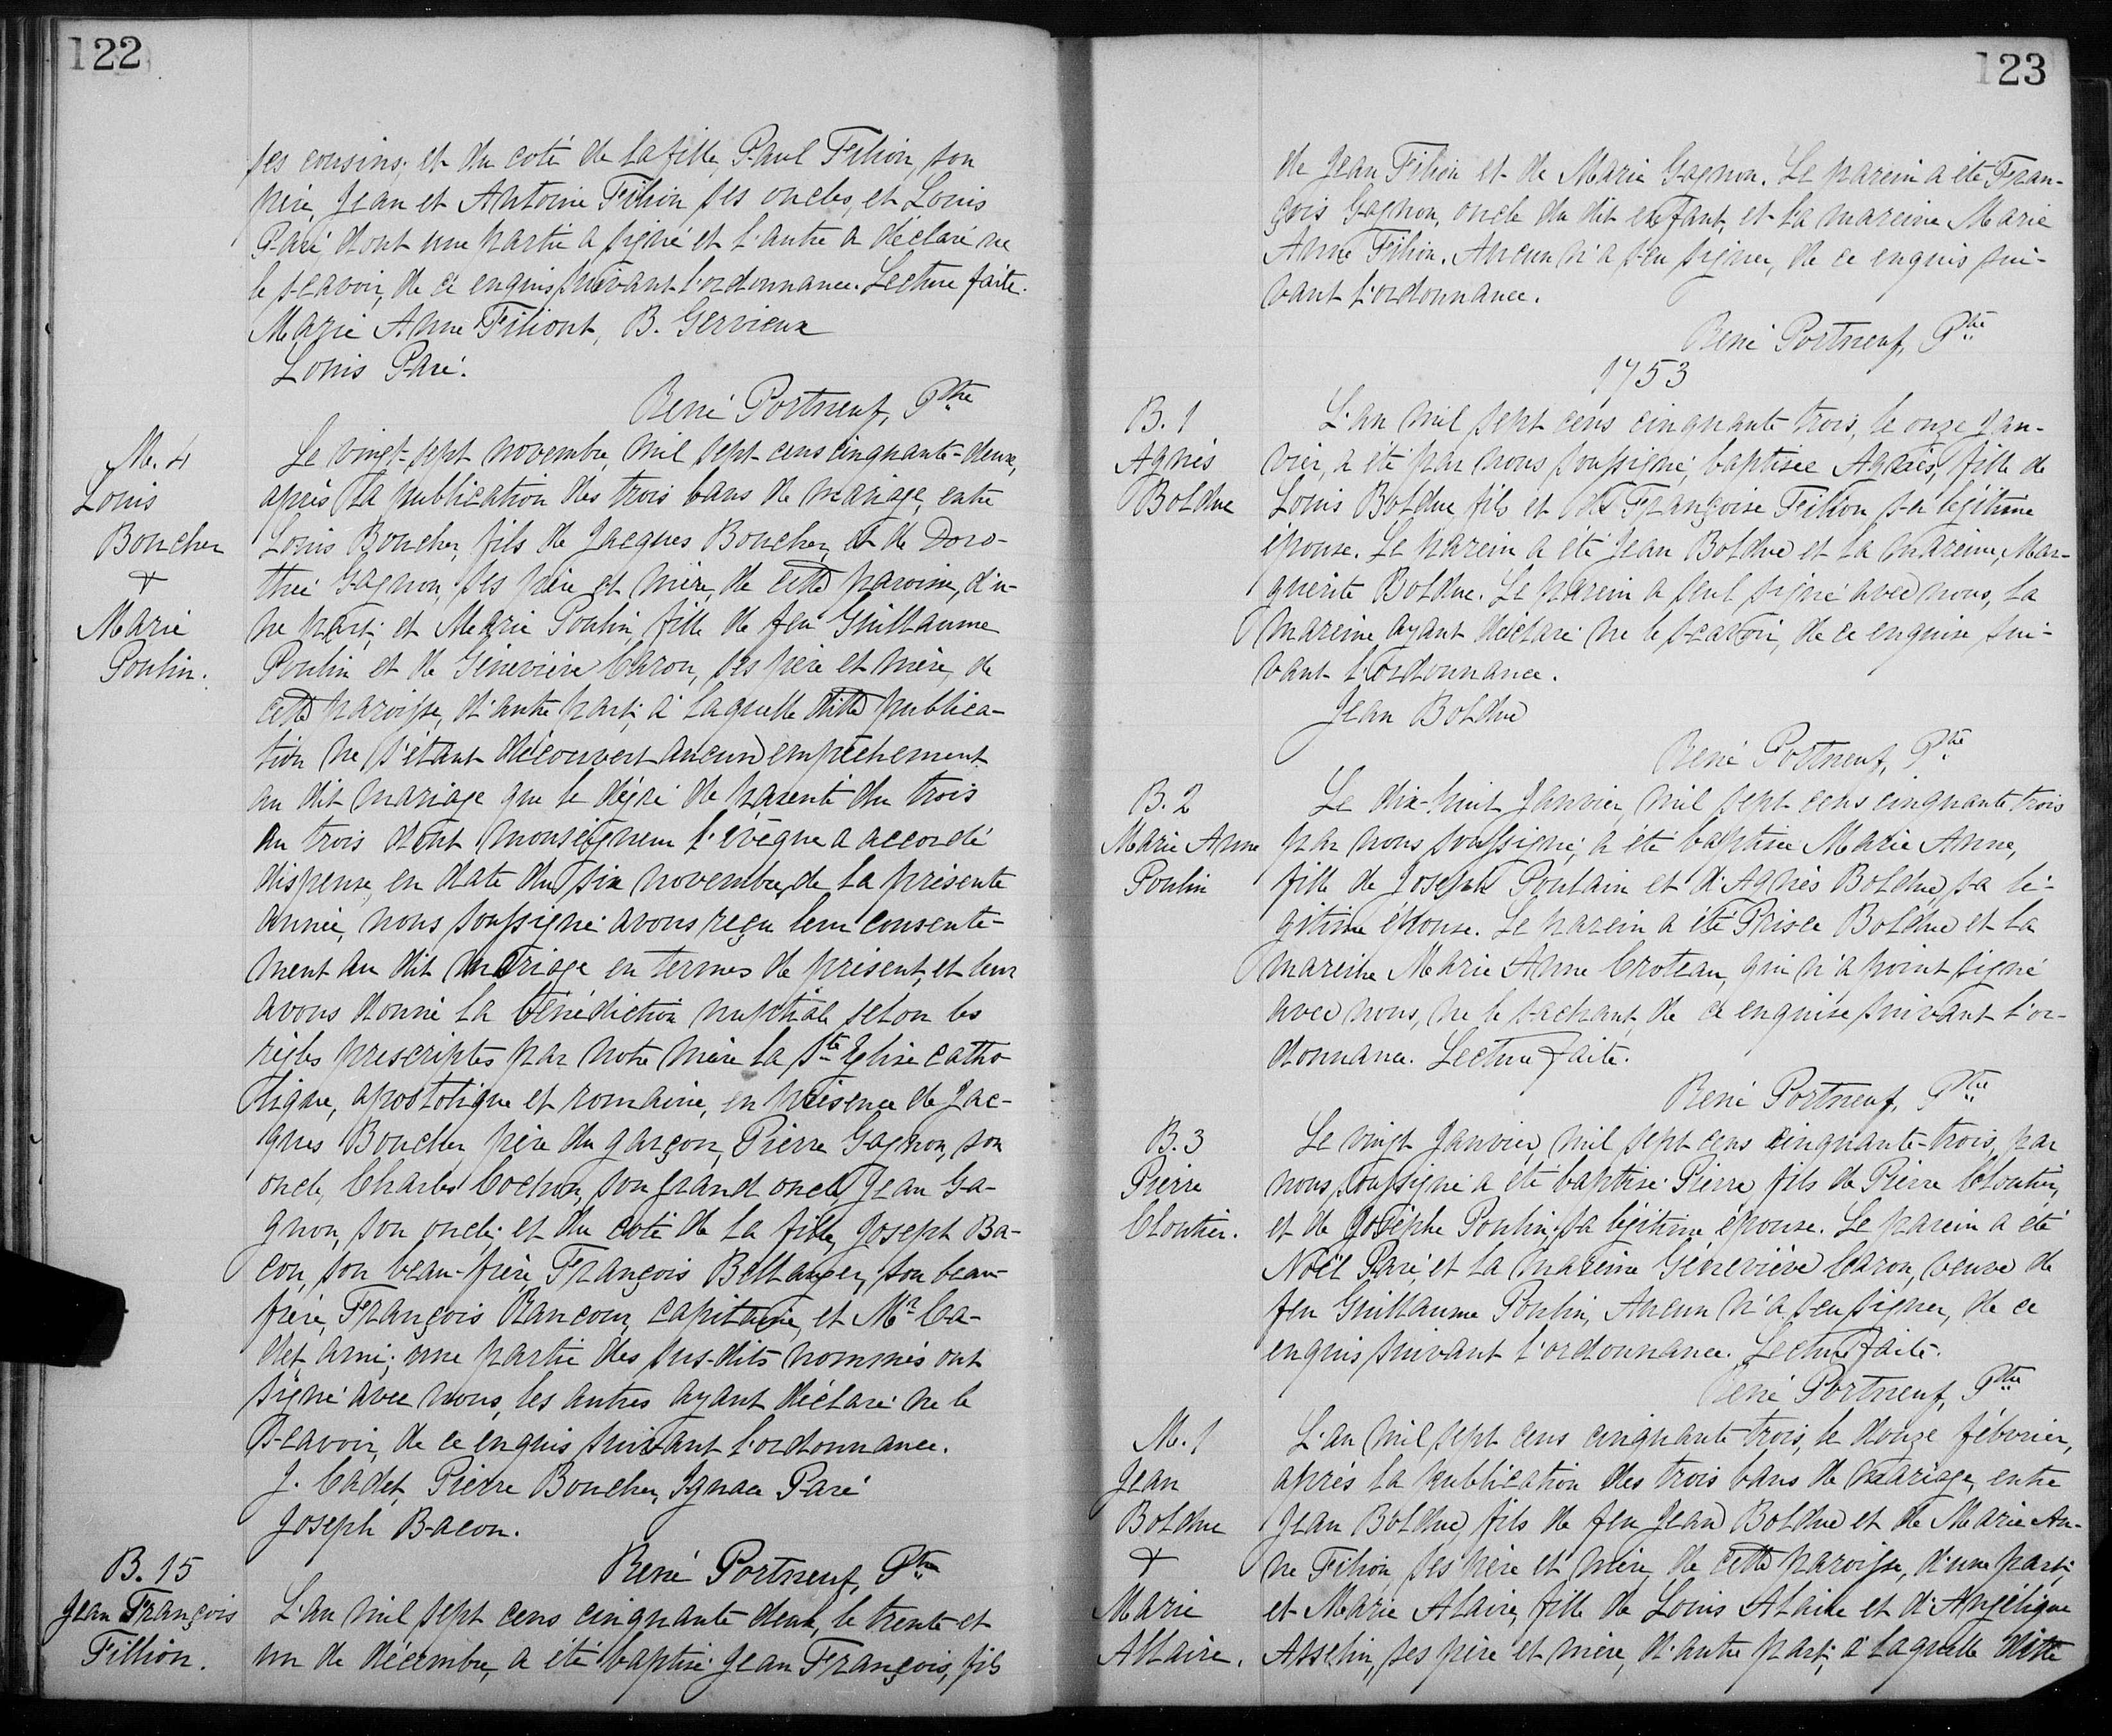 122
ses cousins; et du coté de la fille, Paul Filion, son
père, Jean et Antoine Filion ses oncles, et Louis
Paré dont une partie a signé et l'autre a déclaré ne
le scavoir, de ce enquis suivant l'ordonnance. Lecture faite.
Marie Anne Filiont, B. Gervieux
Louis Paré.
René Portneuf, Ptre
M. 4
Louis
Boucher
+
Marie
Poulin.
Le vingt-sept novembre, mil sept cens cinquante-deux,
après la publication des trois bans de mariage, entre
Louis Boucher, fils de Jacques Boucher, et de Doro-
thée Gagnon, ses père et mère, de cette paroisse, d'u-
ne part; et Marie Poulin, fille de feu Guillaume
Poulin et de Géneviève Caron, ses père et mère, de
cette paroisse, d'autre part; à laquelle ditte publica-
tion ne s'étant découvert aucun empêchement
au dit mariage que le dégré de parenté du trois
au trois dont monseigneur l'évêque a accordé
dispense, en date du six novembre, de la présente
année, nous soussigné avons reçu leur consente-
ment au dit mariage en termes de présent, et leur
avons donné la bénédiction nuptiale selon les
règles prescriptes par notre mère la Ste Eglise catho-
lique, apostolique et romaine, en présence de Jac-
ques Boucher père du garçon, Pierre Gagnon, son
oncle, Charles Cochon, son grand oncle, Jean Ga-
gnon, son oncle; et du coté de la fille, Joseph Ba-
con, son beau-frère, François Bellanger, son beau-
frère, François Rancour, capitaine, et Mr Ca-
det, ami; une partie des sus-dits nommés ont
signé avec nous, les autres ayant déclaré ne le
scavoir, de ce enquis suivant l'ordonnance.
J. Cadet, Pierre Boucher, Ignace Paré
Joseph Bacon.
René Portneuf, Ptre
B. 15
Jean François
Fillion.
L'an mil sept cens cinquante deux, le trente et
un de décembre, a été baptisé Jean François, fils
123
de Jean Filion et de Marie Gagnon. Le parein a été Fran-
çois Gagnon, oncle du dit enfant, et la mareine Marie
Anne Filion. Aucun n'a sçeu signer, de ce enquis sui-
vant l'ordonnance.
René Portneuf, Ptre
1753
B. 1
Agnès
Bolduc
L'an mil sept cens cinquante trois, le onze jan-
vier, a été par nous soussigné, baptisée Agnès, fille de
Louis Bolduc fils et de Françoise Filion sa légitime
épouse. Le parein a été Jean Bolduc et la mareine, Mar-
guerite Bolduc. Le parein a seul signé avec nous, la
mareine ayant déclaré ne le scavoir, de ce enquise sui-
vant l'ordonnance.
Jean Bolduc
René Portneuf, Ptre
B. 2
Marie Anne
Poulin
Le dix-huit Janvier, mil sept cens cinquante trois
par nous soussigné, a été baptisée Marie Anne,
fille de Joseph Poulain et d'Agnès Bolduc, sa lé-
gitime épouse. Le parein a été Prisce Bolduc et la
mareine Marie Anne Croteau, qui n'a point signé
avec nous, ne le sachant, de ce enquise suivant l'or-
donnance. Lecture faite.
René Portneuf, Ptre
B. 3
Pierre
Cloutier.
Le vingt Janvier, mil sept cens cinquante-trois, par
nous soussigné a été baptisé Pierre fils de Pierre Cloutier,
et de Josephe Poulin, sa légitime épouse. Le parein a été
Noël Paré, et la mareine Géneviève Caron, veuve de
feu Guillaume Poulin, Aucun n'a sçeu signer, de ce
enquis suivant l'ordonnance. Lecture faite.
René Portneuf, Ptre
M. 1
Jean
Bolduc
+
Marie
Allaire.
L'an mil sept cens cinquante trois, le douze février,
après la publication des trois bans de mariage, entre
Jean Bolduc, fils de feu Jean Bolduc et de Marie An-
ne Filion, ses père et mère, de cette paroisse, d'une part;
et Marie Alaire, fille de Louis Alaire et d'Angélique
Asselin, ses père et mère, d'autre part; à laquelle ditte